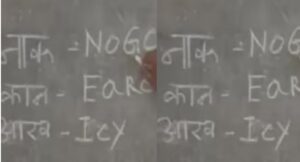 नाक = NOGC नाक - NOG
कान - EarC कान - Ear
आरव - Icy आरव - Icy